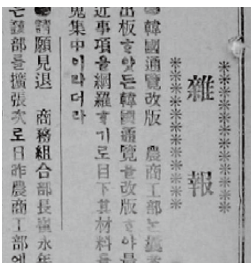 雜報
※※※※※※※※※※※※
※※※※※※※※※※※※
韓國通覽改版 農商工部논
出板ᄒᆞ얏든韓國通覽을改版ᄒᆞ야最
近事項을網羅ᄒᆞ기로目下其材料를
蒐集中이라더라
請願見退 商務組合部長 永年
部를擴張次로日昨農商工部에